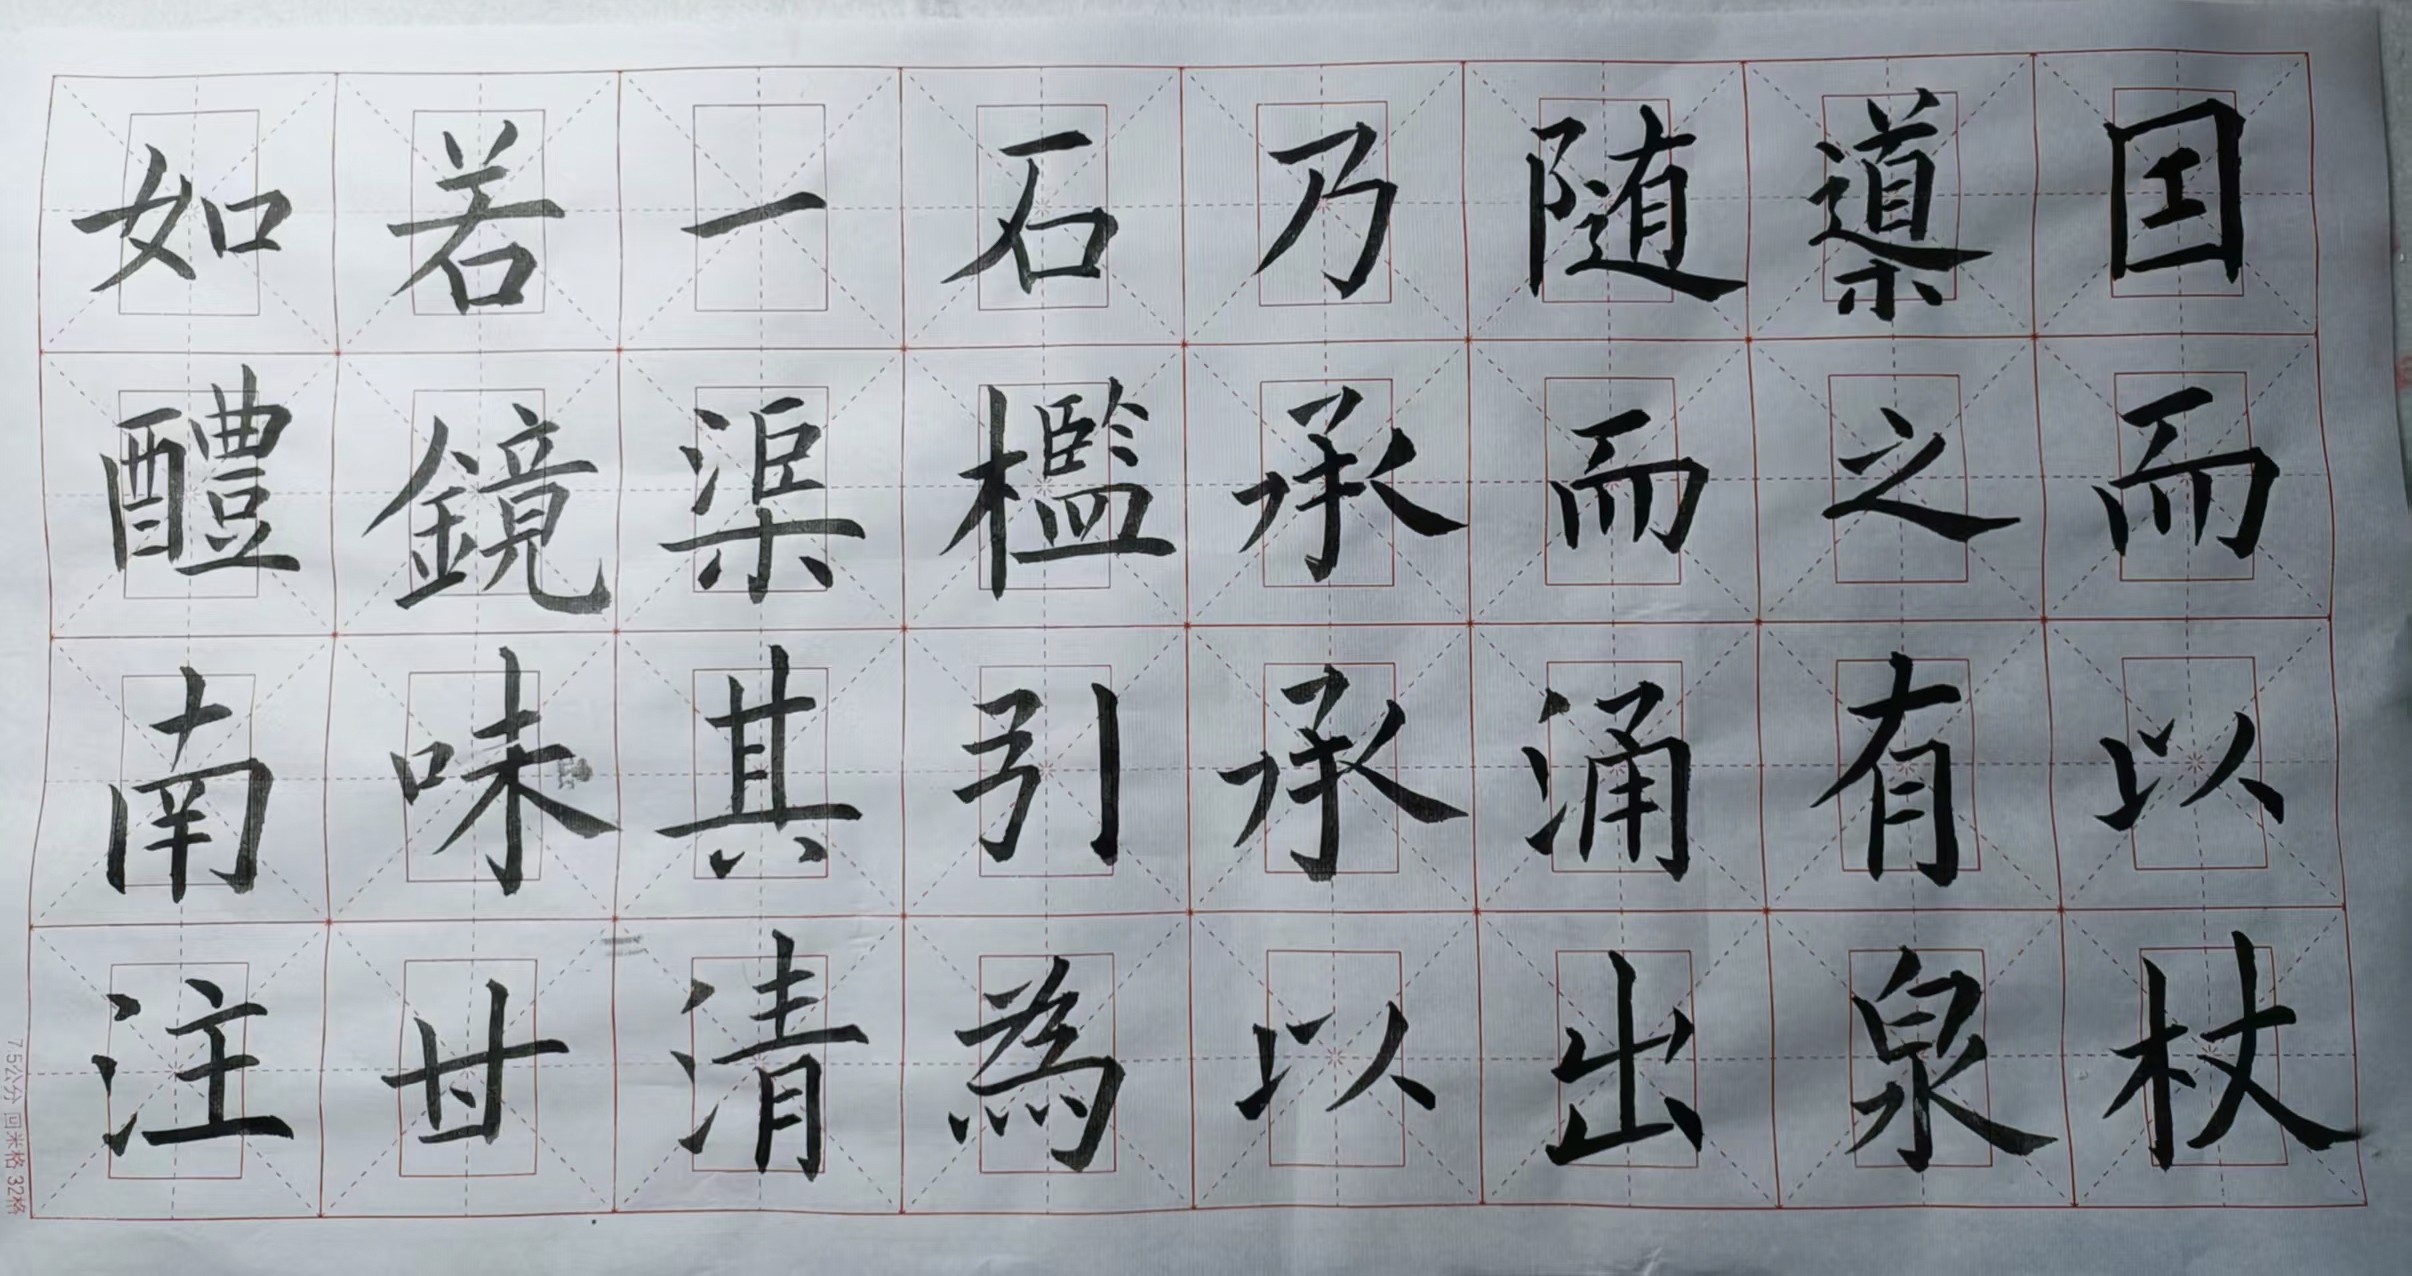 因而以杖
導之有泉
随而涌出
乃承承以
石檻引為
一渠其清
若鏡味甘
如醴南注
7.5公分 回米格 32格